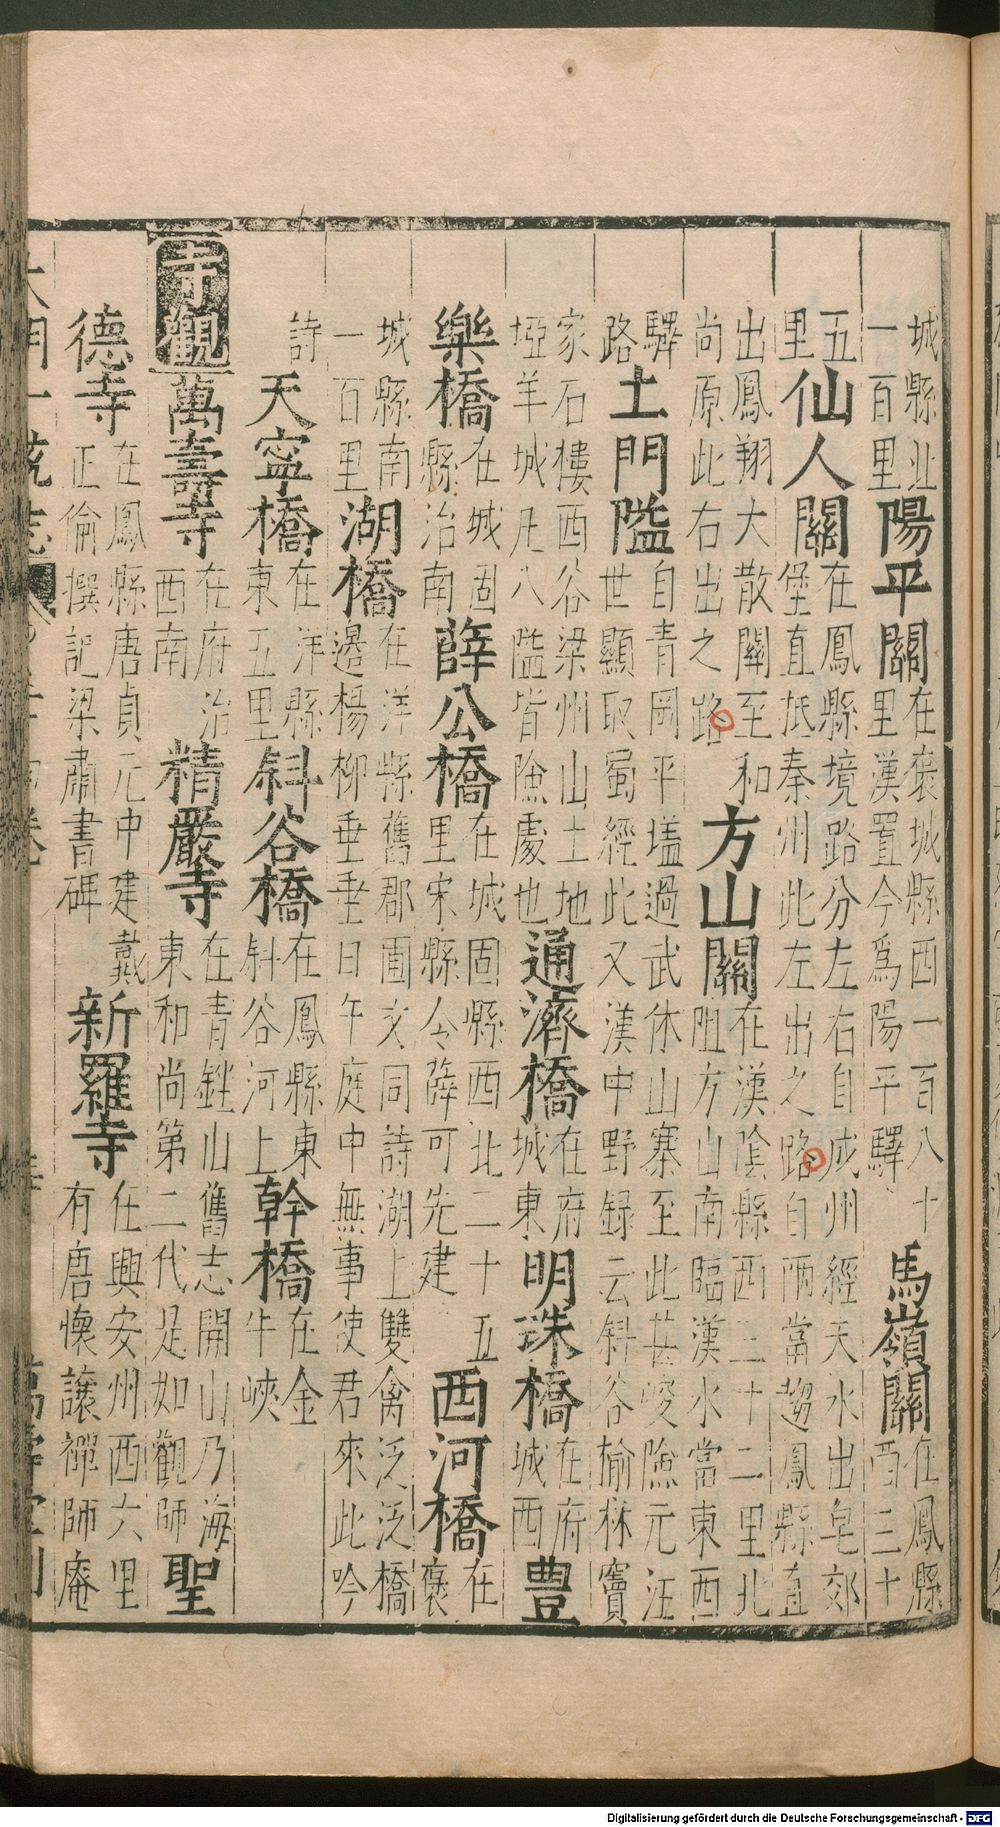 城縣北一百里陽平關在褒城縣西一百八十里漢置今爲陽平驛馬嶺關在鳳縣西三十
五里仙人關在鳳縣境路分左右自成州經天水出皂郊堡直抵秦州此左出之路自兩當趨鳳縣直
出鳳翔大散關至和尚原此右出之路方山關在漢陰縣西三十二里北阻方山南臨漢水當東西
驛路土門隘自青岡平𡒄過武休山寨至此甚峻險元汪世顯取蜀經此又漢中野録云斜谷榆林竇
家石樓西谷梁州山土地埡羊城凡八隘皆險處也通濟橋在府城東明珠橋在府城西豊
樂橋在城固縣治南薛公橋在城固縣西北二十五里宋縣令薛可先建西河橋在褒
城縣南一百里湖橋在洋縣舊郡圃文同詩湖上雙禽泛泛橋邊楊柳垂垂日午庭中無事使君來此吟
詩天寧橋在洋縣東五里斜谷橋在鳳縣東斜谷河上幹橋在金牛峽
寺觀萬壽寺在府治西南精嚴寺在青銼山舊志開山乃海東和尚第二代足如觀師聖
德寺在鳳縣唐貞元中建戴正倫撰記梁肅書碑新羅寺在興安州西六里有唐懷讓禪師庵
大明一統志
Digitalisierung gefördert durch die Deutsche Forschungsgemeinschaft - DFG